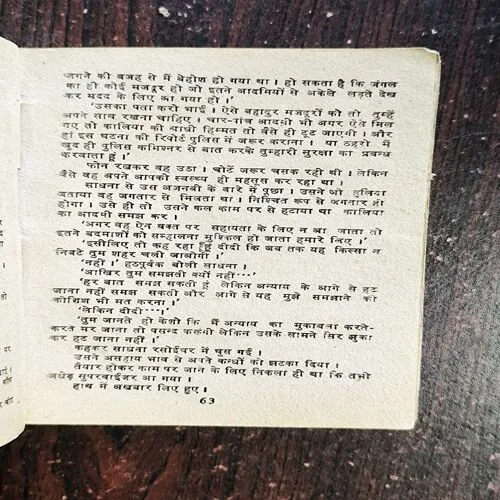 लगने की वजह से मैं बेहोश हो गया था । हो सकता है कि जंगल
का ही कोई मजदूर हो जो इतने आदमियों से अकेले लड़ते देख
कर मदद के लिए आ गया हो ।'
'उसका पता करो भाई । ऐसे बहादुर मजदूरों को तो तुम्हें
अपने साथ रखना चाहिए । चार-पांच आदमी भी अगर ऐसे मिल
गए तो कालिया की आधी हिम्मत तो वैसे ही टूट जाएगी । और
हां इस घटना की रिपोर्ट पुलिस में जरूर कराना । या ठहरो मैं
खुद ही पुलिस कमिश्नर से बात करके तुम्हारी सुरक्षा का प्रबन्ध
करवाता हूं ।'
फोन रखकर वह उठा । चोटें जरूर चसक रही थीं । लेकिन
वैसे वह अपने आपको स्वस्थ ही महसूस कर रहा था ।
साधना से उस अजनबी के बारे में पूछा । उसने जो हुलिया
बताया वह जगतार से मिलता था । निश्चित रूप से जगतार ही
होगा । उसे ही तो उसने कल काम पर से हटाया था कालिया
का आदमी समझ कर ।
'अगर वह ऐन वक्त पर सहायता के लिए न आ जाता तो
इतने बदमाशों को सम्हालना मुश्किल हो जाता हमारे लिए ।'
'इसीलिए तो कह रहा हूं दीदी कि जब तक यह किस्सा न
निबटे तुम शहर चली जाओगी ।'
'नहीं ।' हठपूर्वक बोली साधना ।
'आखिर तुम समझती क्यों नहीं····'
'हर बात समझ सकती हूं लेकिन अन्याय के आगे से हट
जाना नहीं समझ सकती और आगे से यह मुझे समझाने की
कोशिश भी मत करना ।'
'लेकिन दीदी····।'
'तुम जानते हो केशो कि मैं अन्याय का मुकाबला करते-
करते मर जाना तो पसन्द करूंगी लेकिन उसके सामने सिर झुका
कर हट जाना नहीं ।'
कहकर साधना रसोईघर में घुस गई ।
उसने असहाय भाव से अपने कन्धों को झटका दिया ।
तैयार होकर काम पर जाने के लिए निकला ही था कि तभी
अधेड़ सुपरवाईजर आ गया ।
हाथ में अखबार लिए हुए ।
63